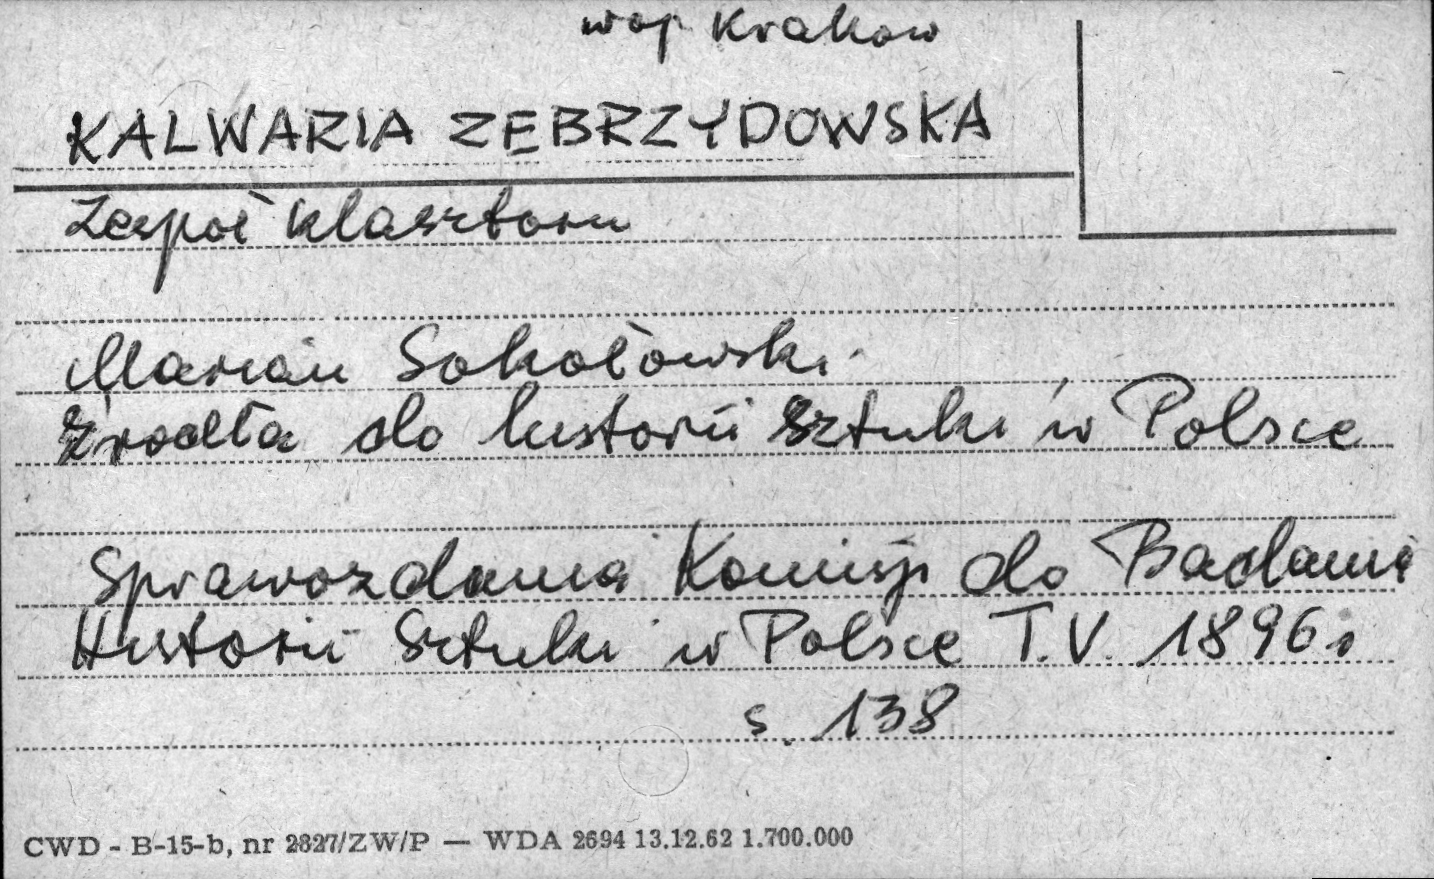 woj. Kraków
KALWARIA ZEBRZYDOWSKA
Zespół klasztoru
Marian Sokołowski
Źrodła do historii sztuki w Polsce
Sprawozdania Komisji do Badania
Historii Sztuki w Polsce T.V. 1896.
s. 138
CWD - B-15-b, nr 2827/ZW/P — WDA 2694 13.12.62 1.700.000